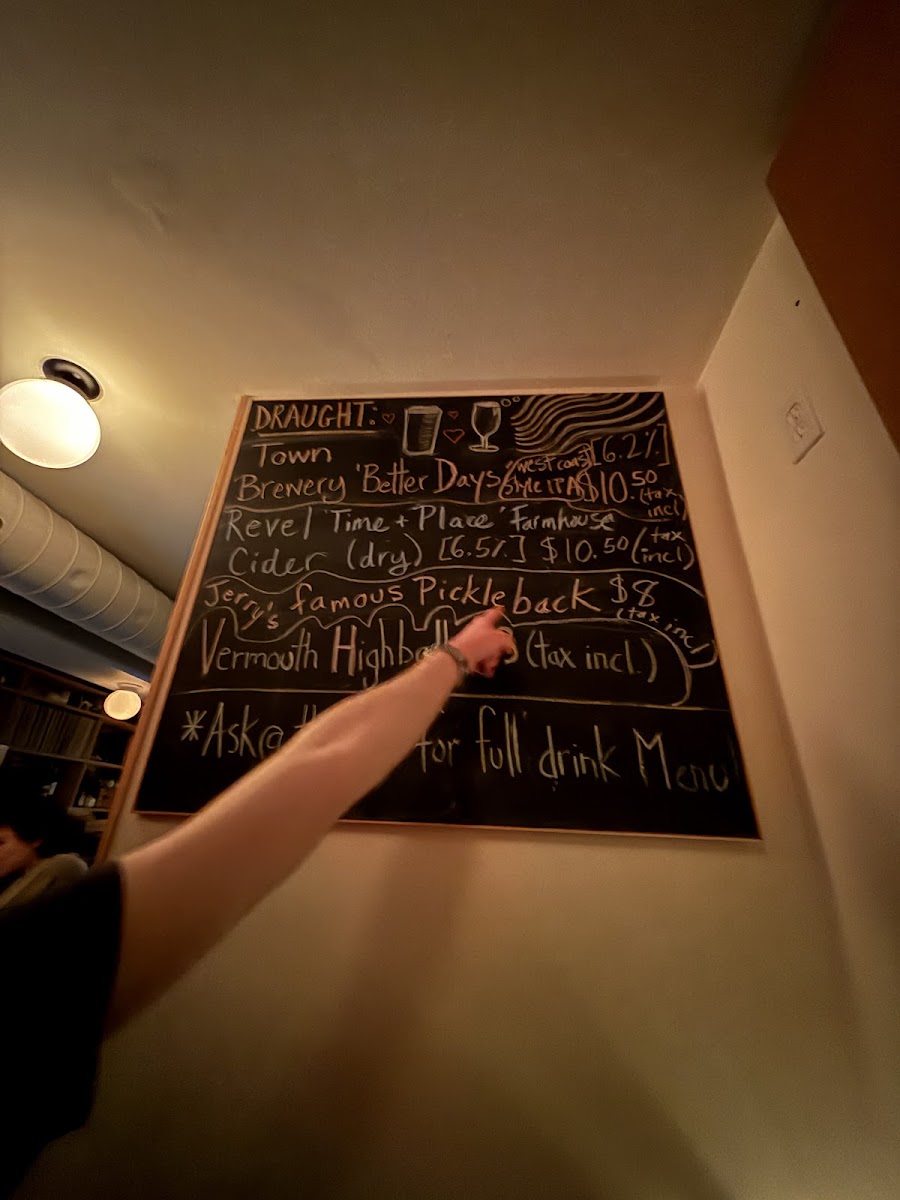 DRAUGHT:
Town
Brewery 'Better Days' (west coast style IPA) [6.2%] $10.50 (tax incl)
Revel 'Time + Place' Farmhouse
Cider (dry) [6.5%] $10.50 (tax incl)
Jerry's famous Pickleback $8 (tax incl)
Vermouth (tax incl.)
*Ask@ for full drink Menu